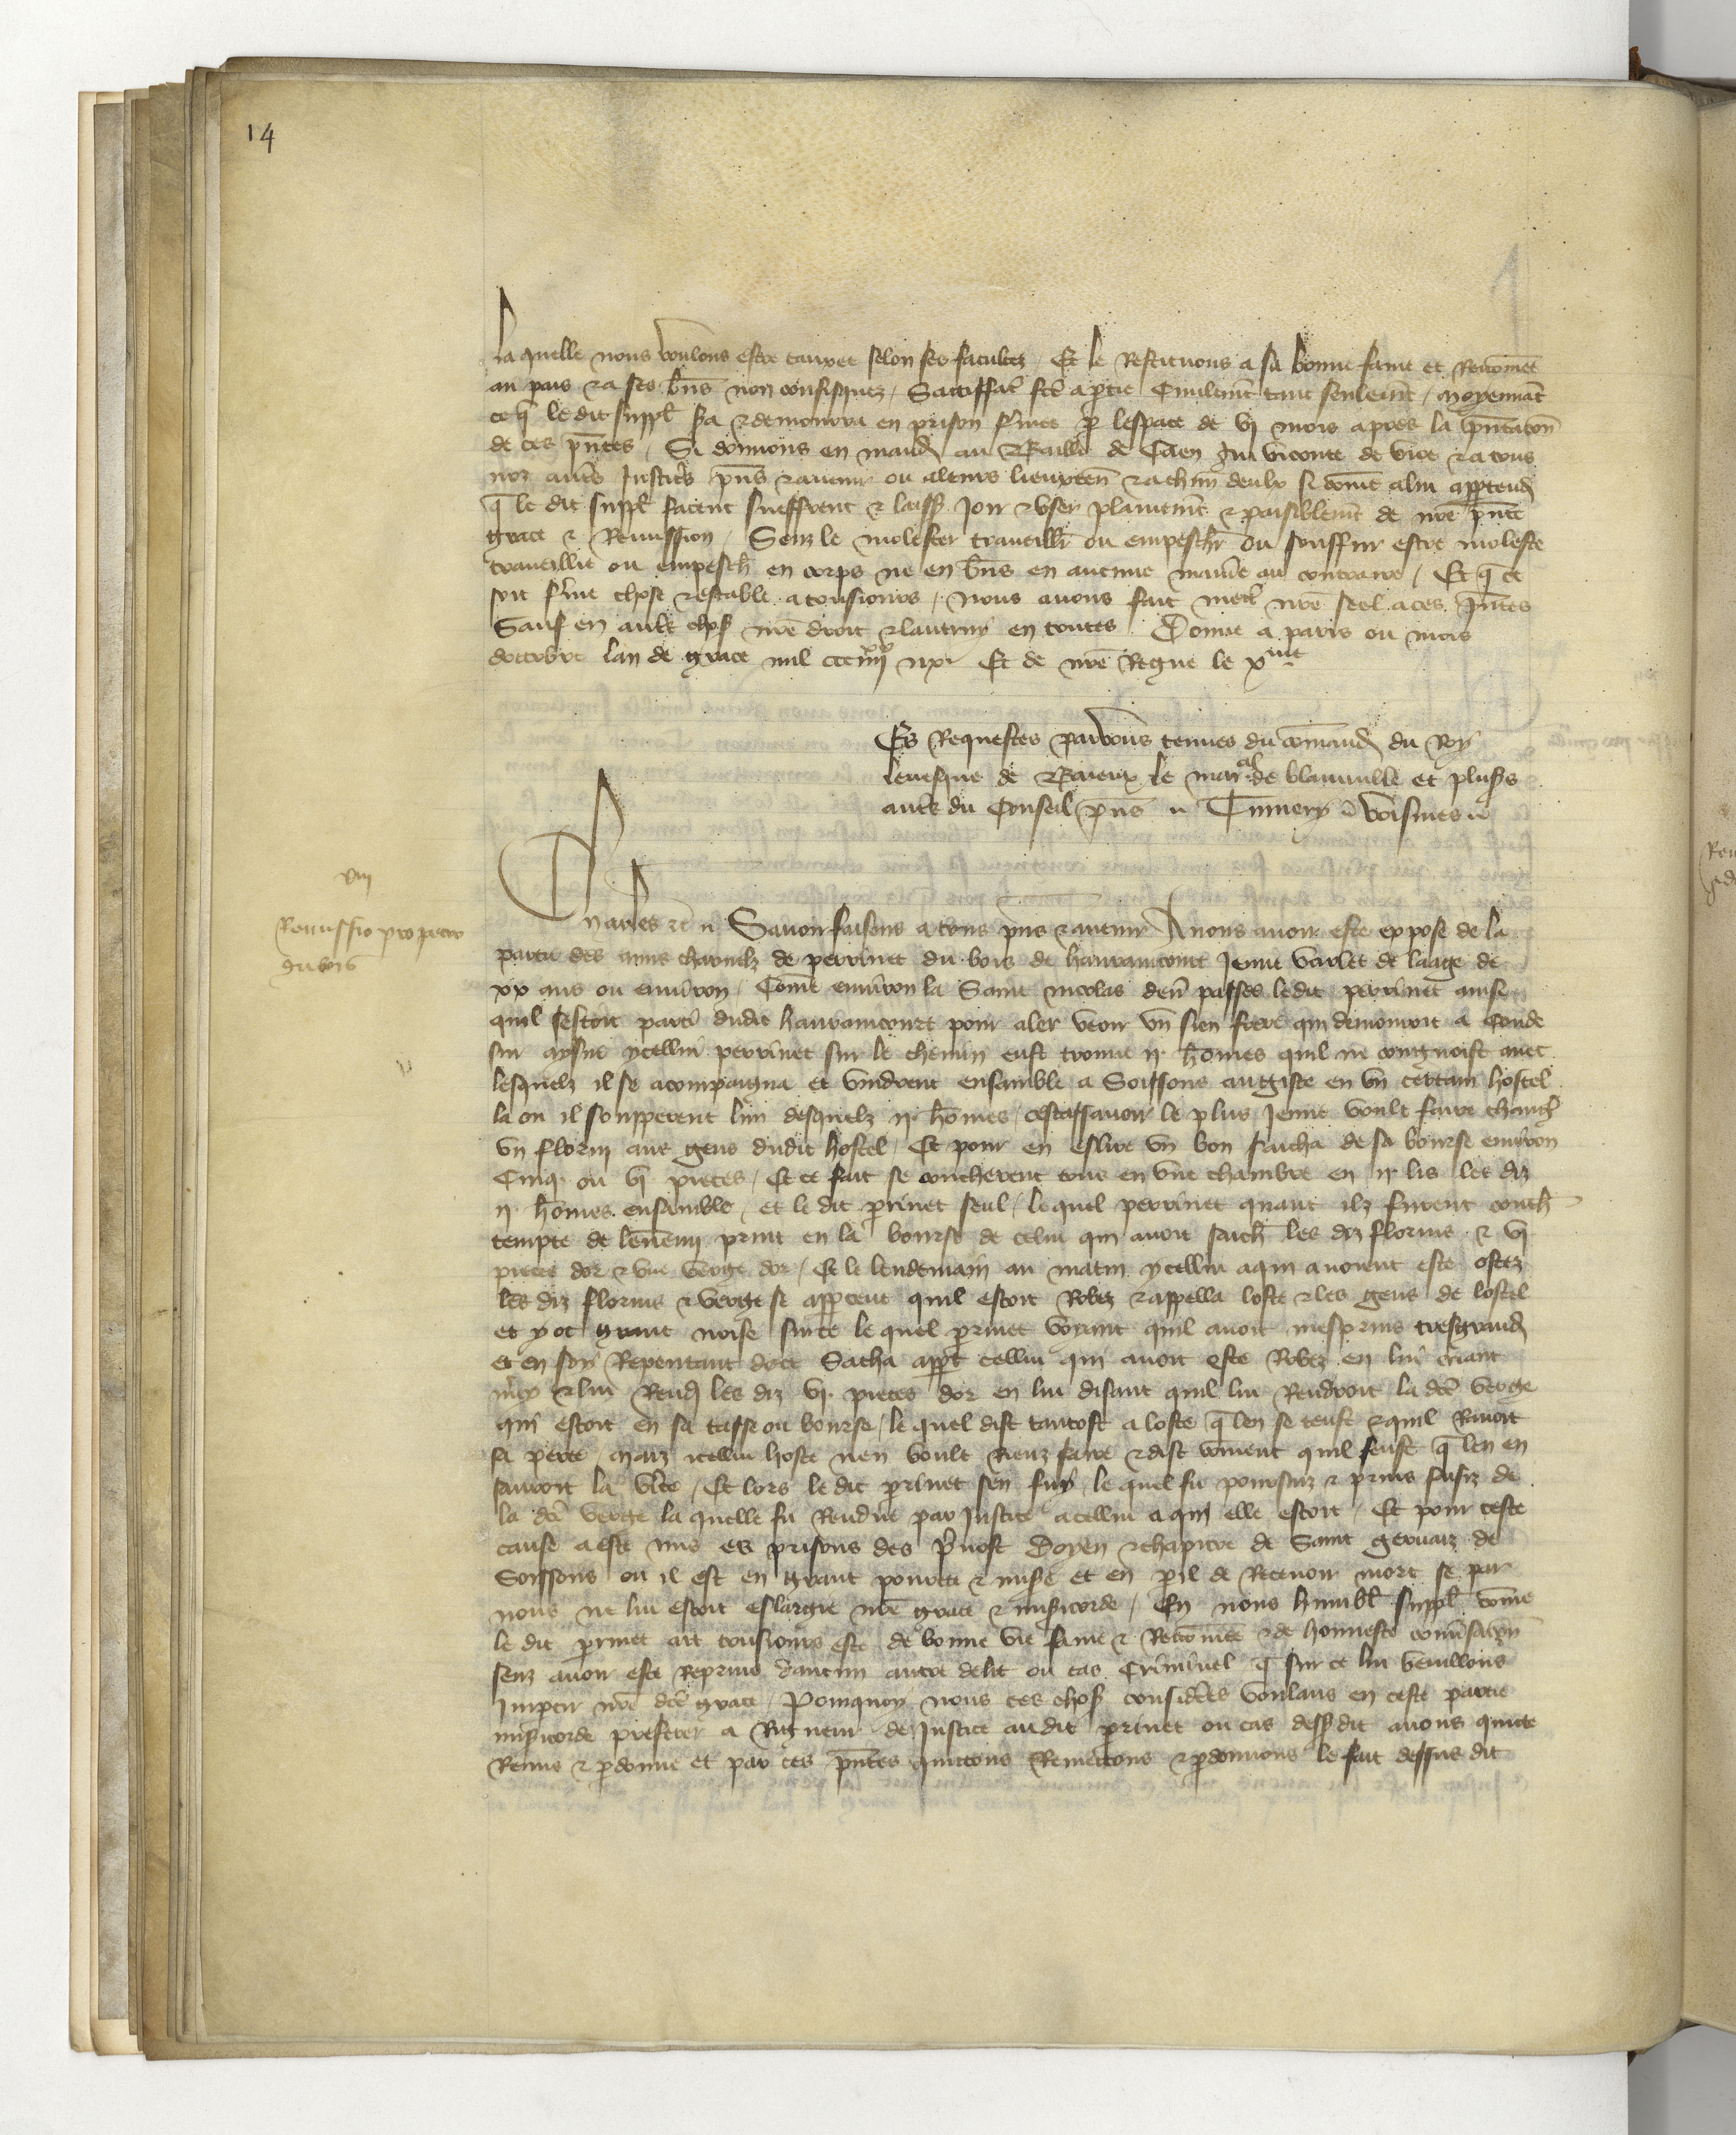 14
la quelle nous voulons estre tauxee selon ses facultez / Et le Restituons a sa bonne fame et Renomee
au pais & a ses bns non confisquez / Satisffacc fce a ptie Civilemt tant seulemt / moyennat
ce q le dit suppl sa & demourra en prison fmee p lespace de vj mois apres la pntacon
de ces pntes / Si donnons en mand au Bailli de Caen au viconte de vire & a tous
noz autes Justices pns & avenir ou a leurs lieuxten & a chun deulx si come a lui apptend
q le dit suppl facent sueffrent & laiss Joir & user plainemt & paisiblemt de nre pnte
grace & Remission / Senz le molester travaillr ou empeschr ou souffrir estre moleste
travaillie ou empesch en corps ne en bns en aucune manie au contraire / Et q ce
soit fme chose & estable a tousiours / nous avons fait mett nre seel a ces pntes
Sauf en autes chos nre droit & lautruy en toutes Donne a paris ou mois
doctobre lan de grace mil ccc iiij xx xix Et de nre Regne le xx me
Es Requestes par vous tenues du comand du Roy
levesque de Baieux le mar al de blainville et pluss
autes du Conseil pns n Thiuery ō voisines n
viij
Remissio pro petro
du bois
Charles &c n Savoir faisons a tous pns & avenir A nous avoir este expose de la
partie des amis charnelz de perrinet du bois de hauraincourt Jeune varlet de laage de
xx ans ou environ / Come environ la Saint nicolas derr passes ledit perrinet ainsi
quil sestoit parti dudit hauraincourt pour aler veoir un sien frere qui demouroit a Conde
sur aysne ycellui perrinet sur le chemin eust trouve ij homes quil ne congnoist avec
lesquelz il se acompaigna et vindrent ensamble a Soissons au giste en un certain hostel
la ou il soupperent lun desquelz ij homes / cestassavoir le plus Jeune voult faire changr
un florin aux gens dudit hostel / Et pour en eslire un bon sacha de sa bourse environ
Cinq ou vj pieces / Et ce fait se coucherent tous en une chambre en ij lis les diz
ij homes ensamble / et le dit prinet seul / le quel perrinet quant ilz furent couch
tempte de lennemi print en la bourse de celui qui avoit sach les diz florins & vj
pieces dor & une verge dor / Et le lendemain au matin ycellui a qui avoient este ostez
les diz florins & verge se appceut quil estoit Robez & appella loste & les gens de lostel
et y ot grant noise sur ce le quel prinet voyant quil avoit mespris tresgrand
et en soy Repentant dece Sacha appt cellui qui avoit este Robez en lui criant
mcy & lui Rend les diz vj pieces dor en lui disant quil lui Rendroit la dce verge
qui estoit en sa tasse ou bourse / le quel dist tantost a loste q len se teust & quil Ravoit
sa perte / maiz icellui hoste nen voult Riens faire & dist coment quil feust q len en
sauroit la vite / Et lors le dit prinet sen fuy / le quel fu poursuiz & prins saisiz de
la dce verge la quelle fu Rendue par Justice a cellui a qui elle estoit / Et pour ceste
cause a este mis es prisons des prevost Doyen & chapitre de Saint gervaiz de
Soissons ou il est en grant povrete & mise et en pil de Recevoir mort se par
nous ne lui estoit eslargie nre grace & misicorde / En nous humbl suppl come
le dit prinet ait tousiours este de bonne vie fame & Renomee & de honneste convsacon
senz avoir este Reprins daucun autre delit ou cas Criminel q sur ce lui veuillons
Impetir nre dce grace / Pourquoy nous ces chos considees voulans en ceste partie
misicorde preferer a Rigueur de Justice audit prinet ou cas dessdit avons quitte
Remis & pdonne et par ces pntes quittons Remettons & pdonnons le fait dessus dit